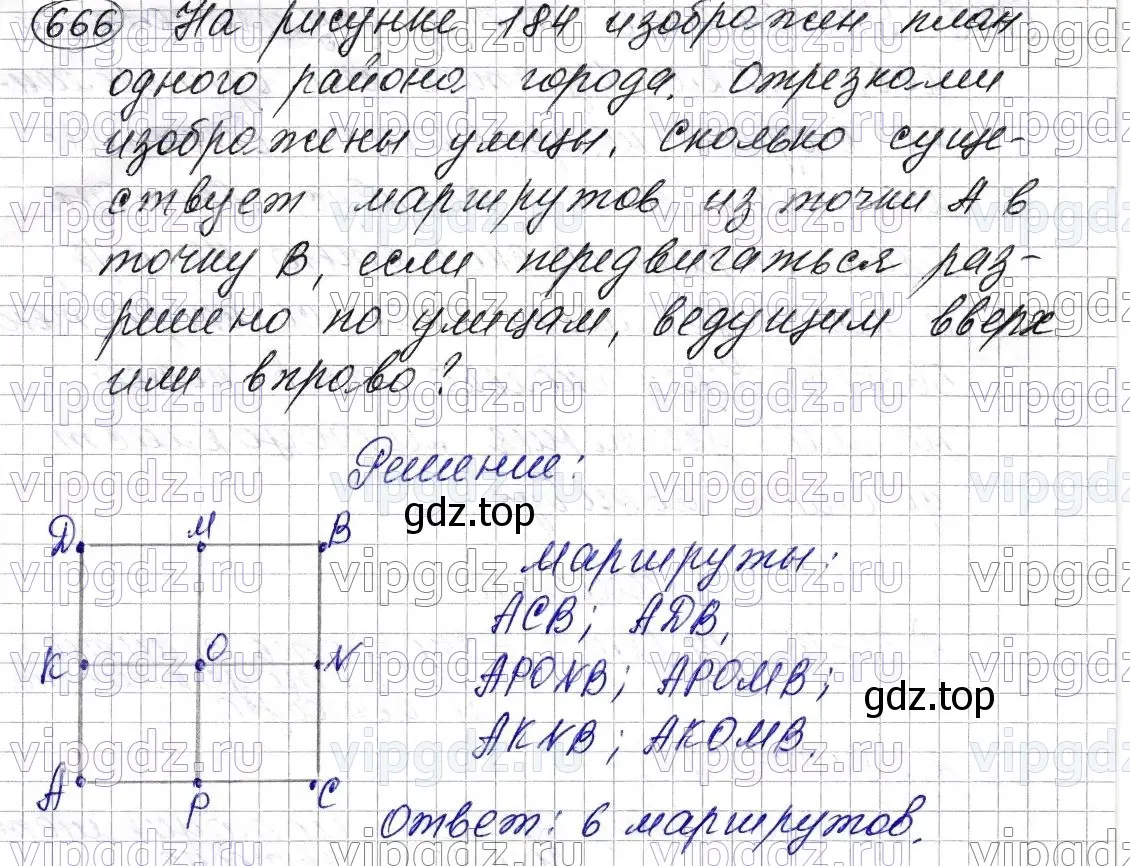 666 На рисунке 184 изображен план
одного района города. Отрезками
изображены улицы. Сколько суще-
ствует маршрутов из точки А в
точку В, если передвигаться раз-
решено по улицам, ведущим вверх
или вправо?
Решение:
gdz.top
Д М В
Маршруты:
АСВ; АДВ,
К О N
APONB; АРОМВ;
gdz.top
AKNB; АКОМВ.
А Р С
Ответ: 6 маршрутов.
vipgdz.ru